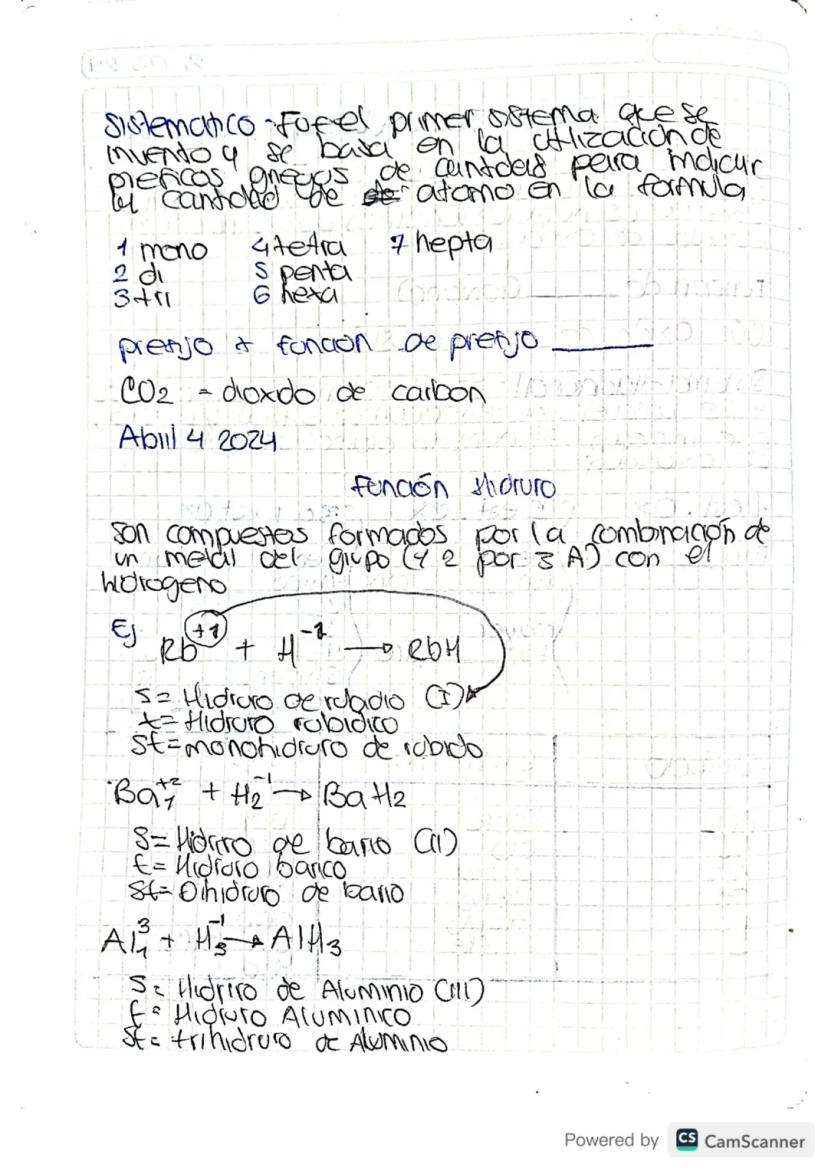 Sistematico - Fue el primer sistema que se
invento y se basa en la utilización de
preficos griegos de cantidad para indicar
la cantidad de atomo en la formula
1 mono 4 tetra 7 hepta
2 di 5 penta
3 tri 6 hexa
prefijo + función de prefijo ______
CO2 = dioxdo de carbon
Abril 4 2024
Función Hidruro
Son compuestos formados por la combinación de
un metal del grupo (y 2 por 3 A) con el
hidrogeno
Ej Rb+1 + H-1 → RbH
S= Hidruro de rubidio (I)
t= Hidruro rubidico
St= monohidruro de rubido
Ba1+2 + H2-1 → BaH2
S= Hidrro de bario (II)
t= Hidruro barico
St= Dihidruro de bario
Al13 + H3-1 → AlH3
S= Hidriro de Aluminio (III)
t= Hidruro Aluminico
St= trihidruro de Aluminio
Powered by CS CamScanner